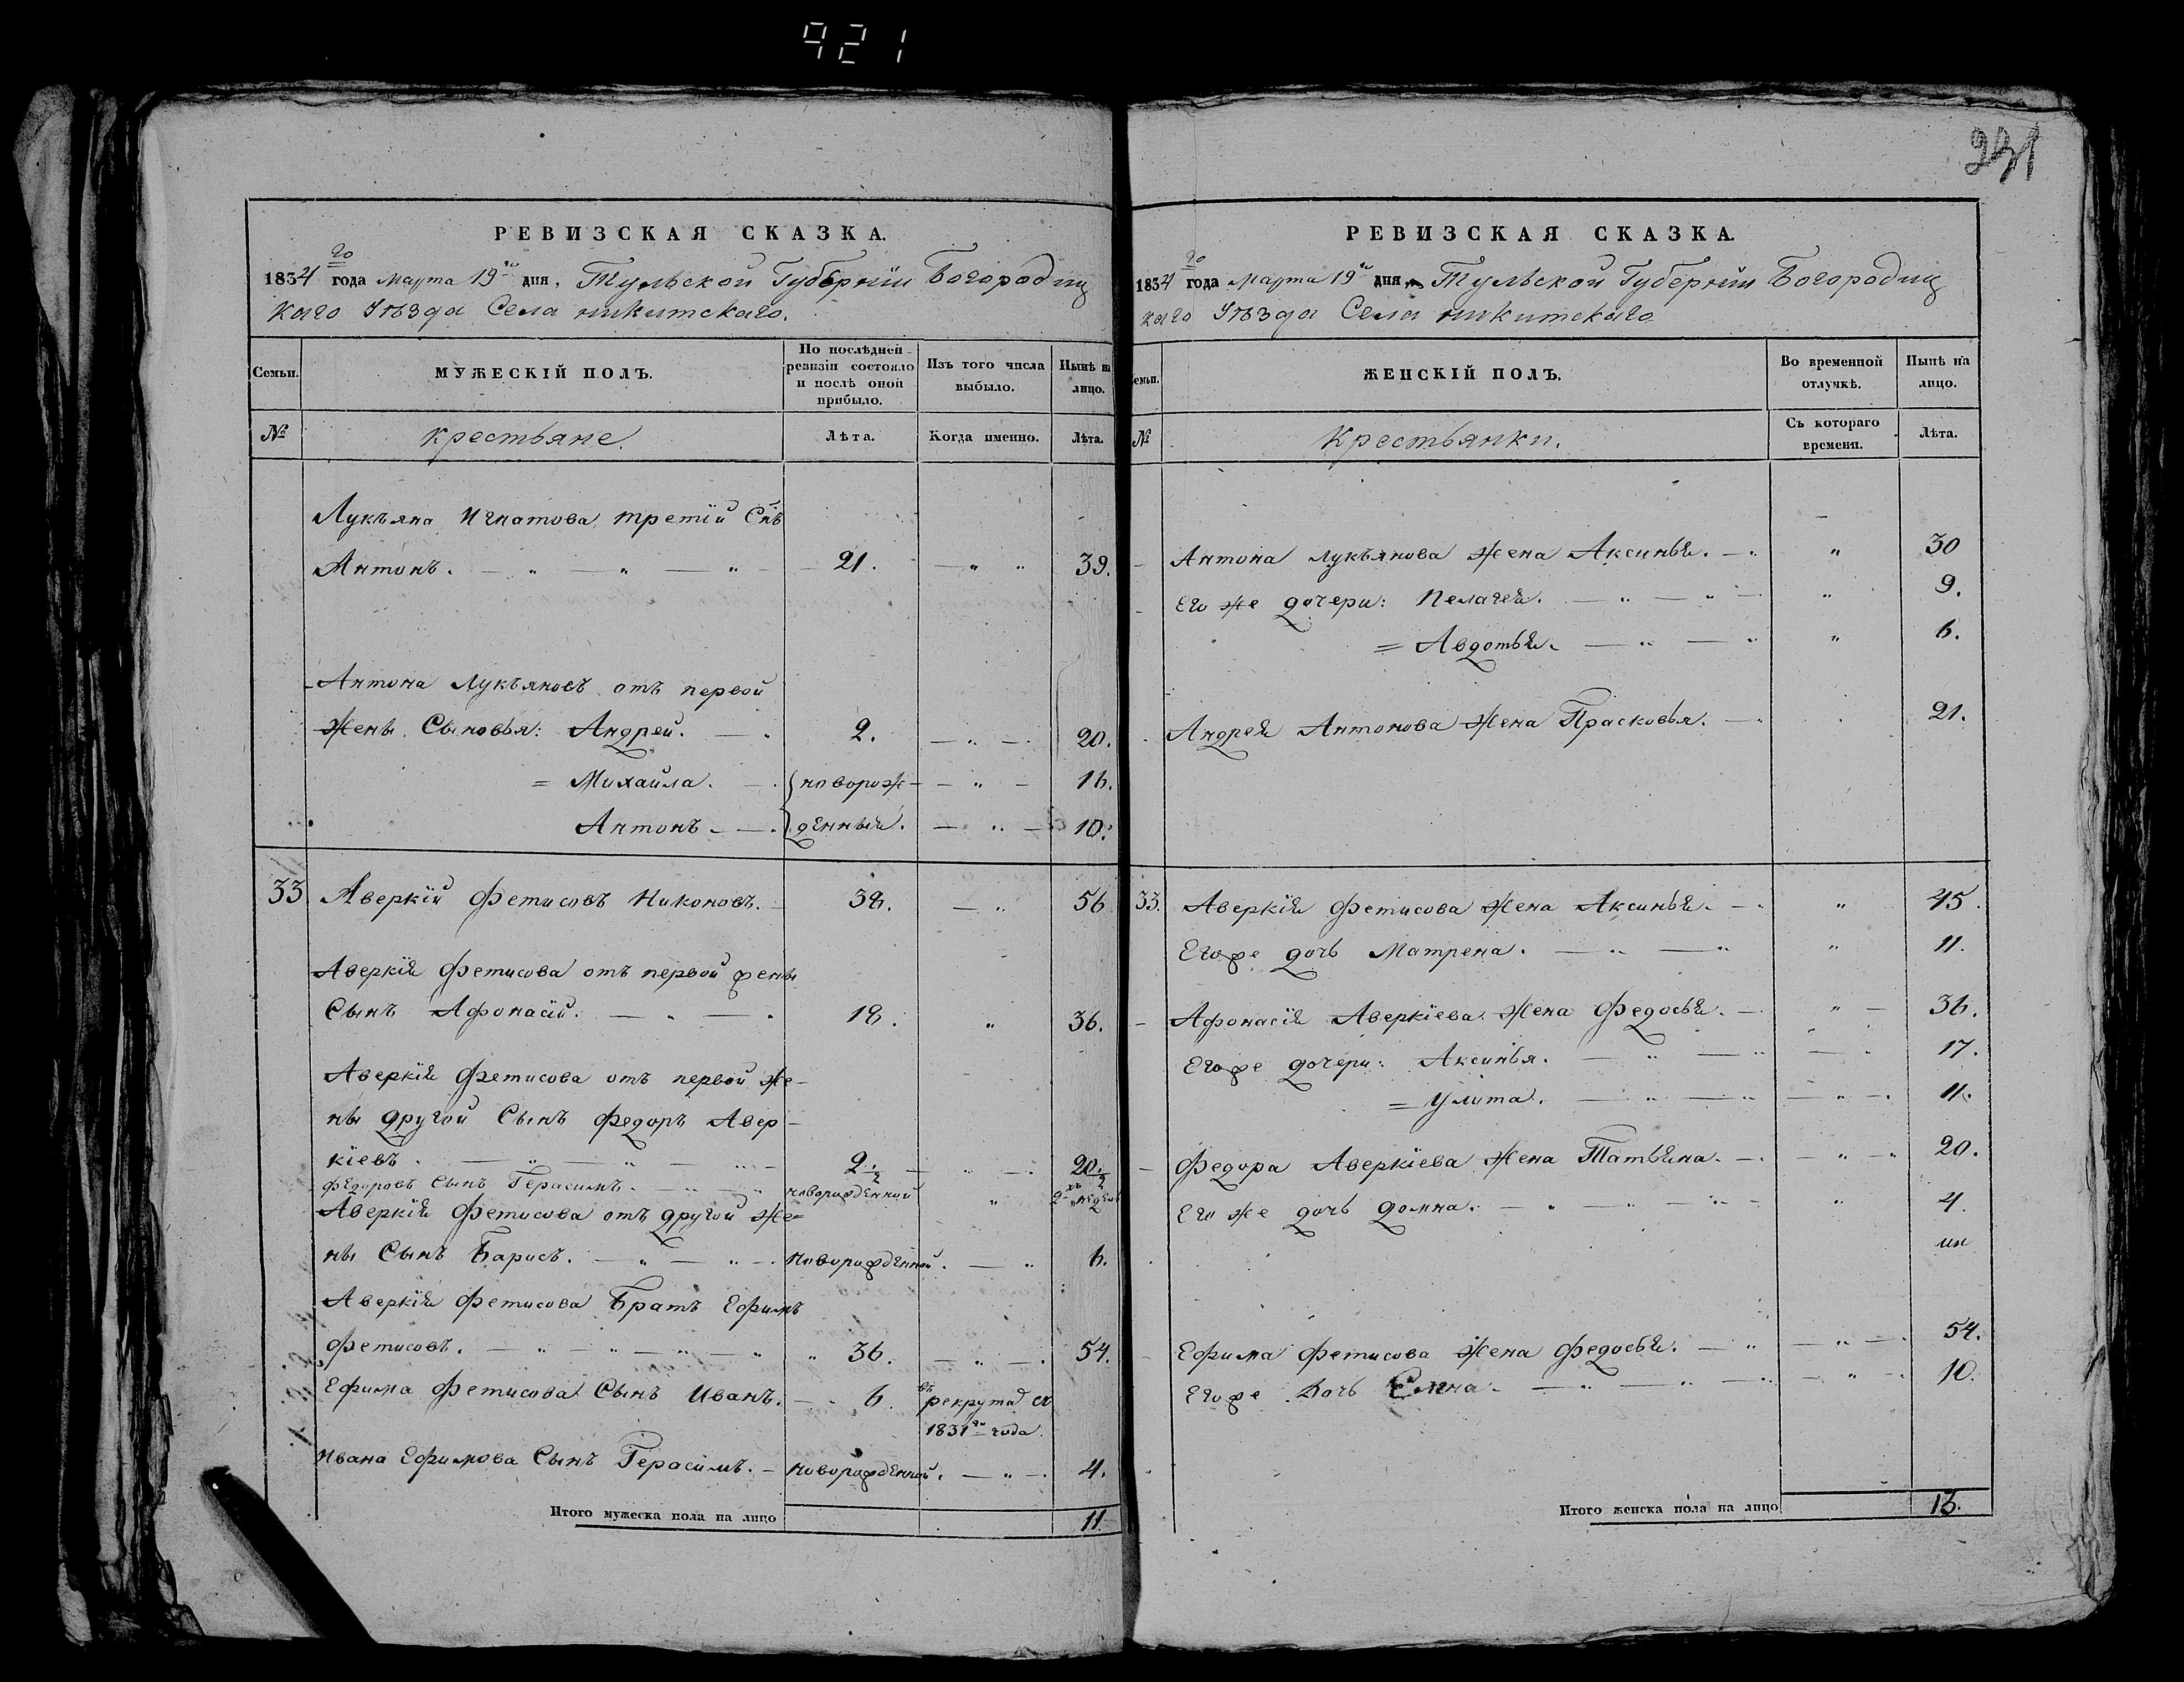 921
231
РЕВИЗСКАЯ СКАЗКА.
1834 го года марта 19 го дня, Тульской Губернїи Богородиц
каго Уѣзда Села никитскаго.
Семьи.
МУЖЕСКІЙ ПОЛЪ.
По послѣдней ревизіи состояло и послѣ оной прибыло.
Изъ того числа выбыло.
Нынѣ на лицо.
№
крестьяне.
Лѣта.
Когда именно.
Лѣта.
Лукъяна Игнатова третїй Снъ
Антонъ. — " — " — " — 21. — " " 39.
Антона Лукъяновъ отъ первой
жены Сыновья: Андрей. — . 2. — " — 20.
= Михайла. — . новорож- — " — 16.
Антонъ — — . денный. — " — 10.
33 Аверкїй Фетисовъ Никоновъ. 38. — " 56
Аверкїя Фетисова отъ первой жены
Сынъ Афонасїй. — " — " 18. " 36.
Аверкїя Фетисова отъ первой же-
ны другой Сынъ Федоръ Авер-
кїевъ. — " — " — " — 2.½ — " — 20.½
Федоровъ Сынъ Герасимъ. — " — " новорожденной " 2-хъ недель
Аверкїя Фетисова отъ другой же-
ны Сынъ Барисъ. — " — " — . новорожденной. — " 6.
Аверкїя Фетисова Братъ Ефимъ
Фетисовъ. — " — " — " — " " 36. — " — . 54.
Ефима Фетисова Сынъ Иванъ. — " 6. въ рекрутах съ
1831 го года.
Ивана Ефимова Сынъ Герасимъ. — новорожденной. — " — . 4.
Итого мужеска пола на лицо 11.
РЕВИЗСКАЯ СКАЗКА.
1834 го года Марта 19 го дня Тульской Губернїи Богородиц
каго Уѣзда Села никитскаго
Семьи.
ЖЕНСКІЙ ПОЛЪ.
Во временной отлучкѣ.
Нынѣ на лицо.
№
Крестьянки.
Съ котораго времени.
Лѣта.
Антона Лукъянова жена Аксинья. — " " 30
Его же дочери: Пелагея. — " — " — " 9.
= Авдотья. — " — " " 6.
Андрея Антонова жена Прасковья. — " 21.
33. Аверкїя Фетисова жена Аксинья. — " " 45.
Егоже дочь Матрена. — " — " " 11.
Афонасїя Аверкїева жена Федосья. — " — 36.
Егоже дочери: Аксинья. — " — " — " 17.
= Улита. — " — " — " — . 11.
Федора Аверкїева жена Татьяна. — . — " — 20.
Его же дочь Домна. — " — " — " — " 4.
Ефима Фетисова жена Федосья. — " — " — . 54.
Егоже Дочь — " — " — " — " — 10.
Итого женска пола на лицо 13.